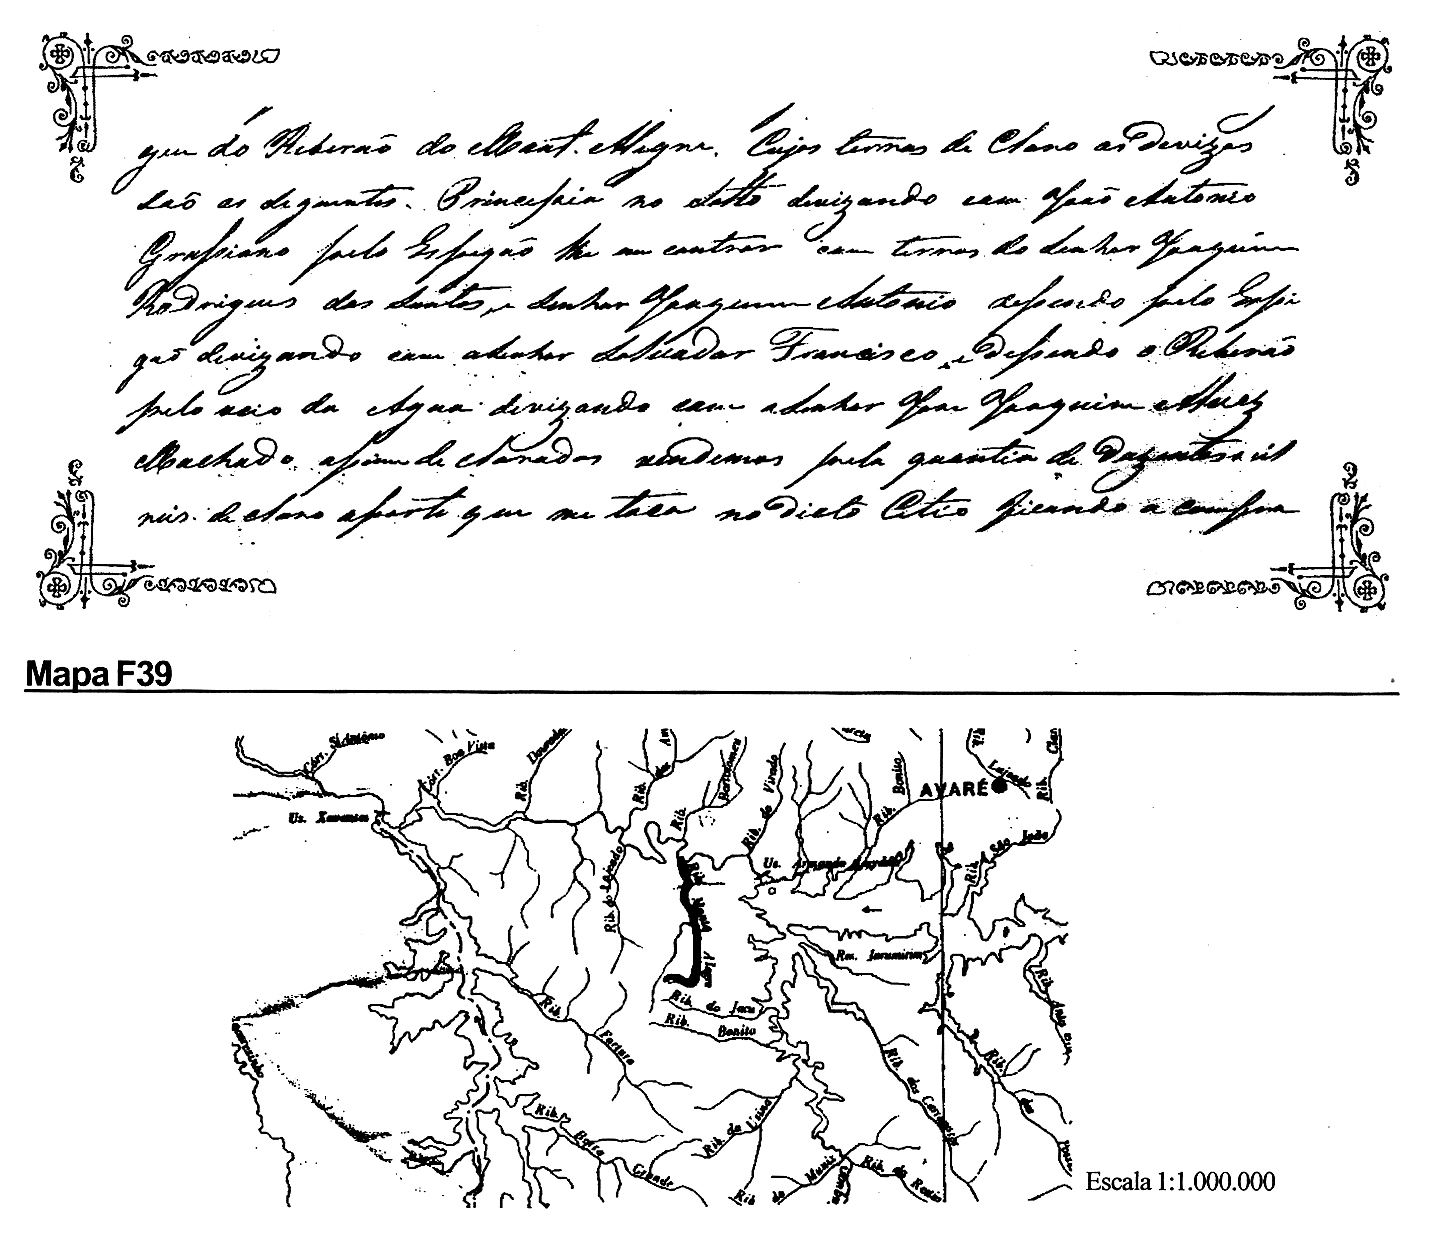 que do Riberaõ do Mont. Alegre. Cujos terras de Claro as devizas
saõ as seguentes. Princepiia no Alto divizando com Joaõ Antonio
Grassiano pello Espegaõ the en contrar com terras do Senhor Joaquim
Rodrigues dos Santos, e Senhor Joaquim Antonio dessendo pelo Espi
gaõ divizando com a Senhor Salvador Francisco, e dessendo o Riberaõ
pelo veio da Agua divizando com a Senhor Joaquim Alvez
Machado assim de Clarados vendemos pela quantia de Duzentos mil
reis. de Claro aparte que me toca no dicto Citio ficando a compra
Mapa F39
Córr. S. Antônio
Córr. Boa Vista
Rib. Dourado
Rib. dos
Rib. Bartolomeu
Rib. do Virado
Rib. Bonito
AVARÉ
Lajeado
Rib.
Us. Xavantes
Rib. do Lajeado
Us. Armando
Rib. São João
Rib. Monte Alegre
Res. Jurumirim
Rib. do Jacu
Rib. Bonito
Rib. Fartura
Rib. dos Carrapatos
Rib. da
Rib. Barra Grande
Rib. da Usina
Rib. do Muniz
Rib. da
Escala 1:1.000.000